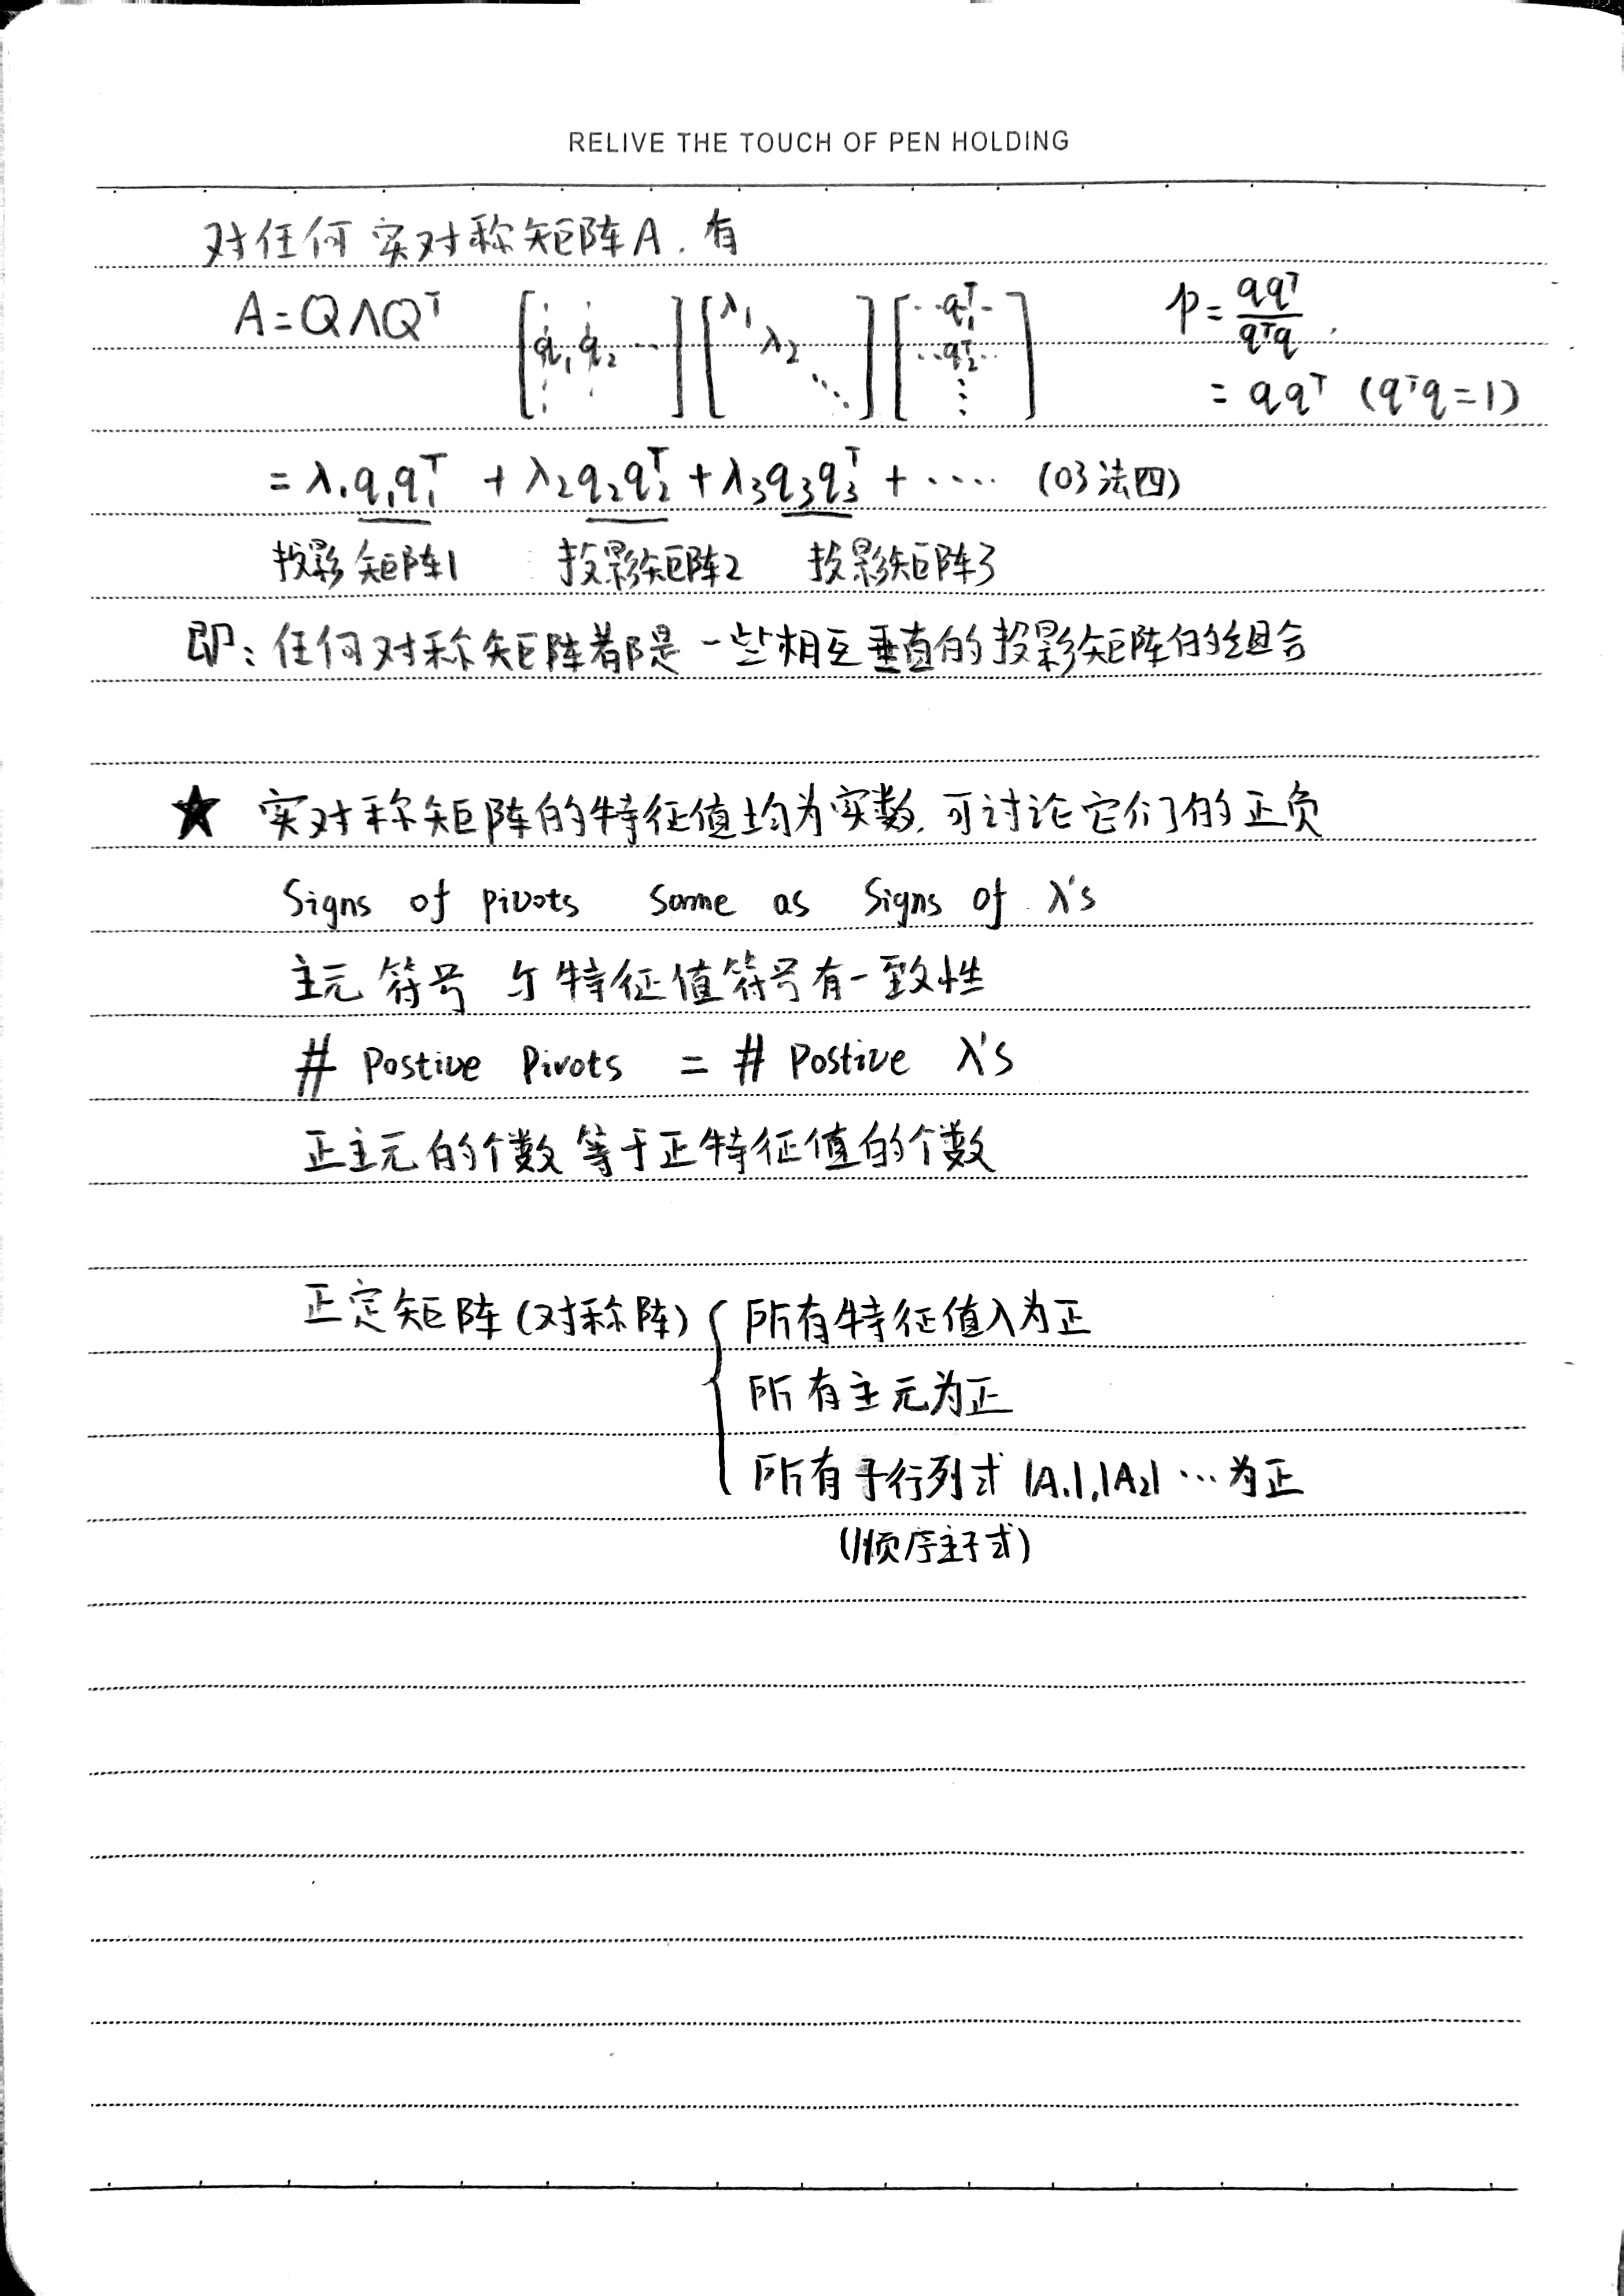 RELIVE THE TOUCH OF PEN HOLDING
对任何实对称矩阵A.有
A=QΛQᵀ [q₁ q₂ …] [λ₁ λ₂ ⋱] [‥q₁ᵀ‥ ‥q₂ᵀ‥ ⋮] p=qqᵀ/qᵀq.
=qqᵀ (qᵀq=1)
=λ₁q₁q₁ᵀ + λ₂q₂q₂ᵀ+λ₃q₃q₃ᵀ+‥‥ (03法四)
投影矩阵1 投影矩阵2 投影矩阵3
即:任何对称矩阵都是一些相互垂直的投影矩阵的组合
★ 实对称矩阵的特征值均为实数.可讨论它们的正负
Signs of pivots same as signs of λ's
主元符号与特征值符号有一致性
# Postive Pivots = # Postive λ's
正主元的个数等于正特征值的个数
正定矩阵(对称阵){ 所有特征值λ为正
所有主元为正
所有子行列式|A₁|,|A₂|…为正
(顺序主子式)